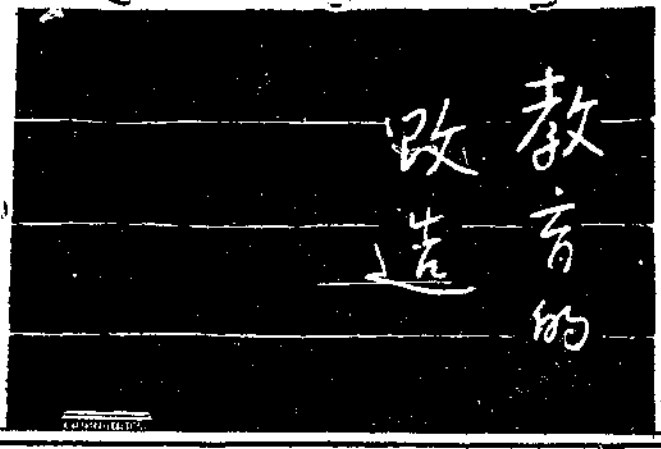 教育的
改造